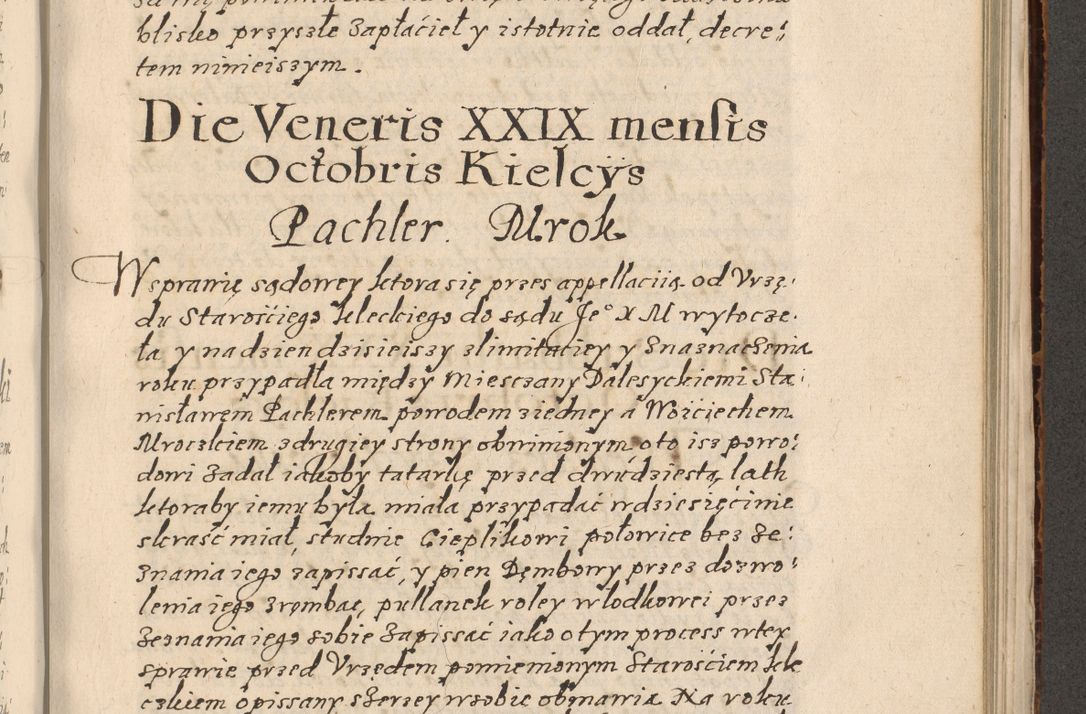 blisko przyszłe zapłacieł y istotnie oddał, decre:
tem ninieiszym.
Die Veneris XXIX mensis
Octobris Kielcÿs
Pachler. Mrok
W sprawię sądowey ktora się przes appellaciią od Vrzę:
du Starośćiego kleckiego do sądu Je° X M wytocze:
ła y na dzien dzisieiszy z limitaciey y znaznaczenia
roku przypadła między Miesczany Dalesyckiemi Sta:
nisławęm Pachlerem powodem ziedney a Woiciechem
Mroczkiem z drugiey strony obwinionym oto isz powo:
dowi zadał iakoby tatarkę przed dwudziestą lath
ktoraby iemu była miała przypadać w dziesięcinie
skraść miał, studnie Cieplikowi połowice bez ze:
znania iego zapissać, y pien Dęmbowy przez dozwo:
lenia iego zrombac, pullanek roley wlodkowei przez
zeznania iego sobie zapissać iako o tym process w tey
sprawie przed Vrzędem pomienionym Starośćiem kle
czkiem opissany szerzey w sobie obmawia Na roku